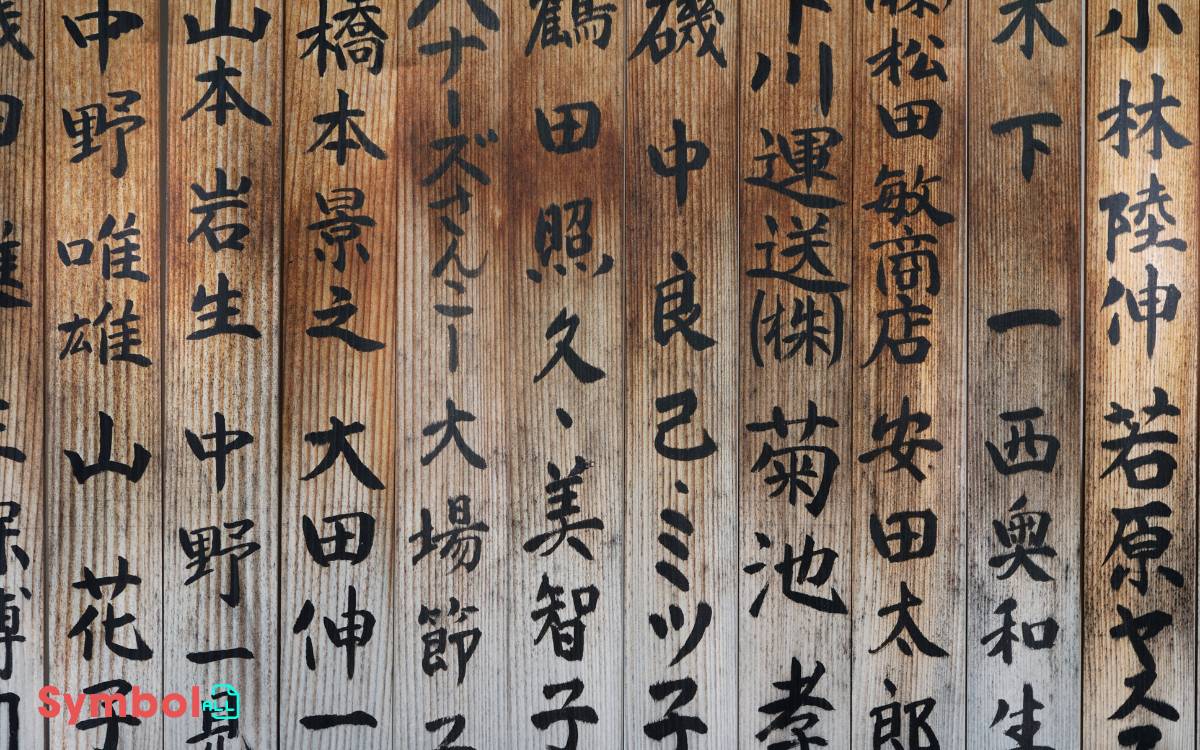 小林陸伸 若原ヤス
木下 一 西奥和生
㈱松田敏商店 安田太郎
下川運送㈱ 菊池 孝
磯中良己、ミツ子
鶴田照久、美智子
ハナーズさんこー 大場節子
橋本景之 大田伸一
山本岩生 中野一見
中野唯雄 山 花子
SymbolALL